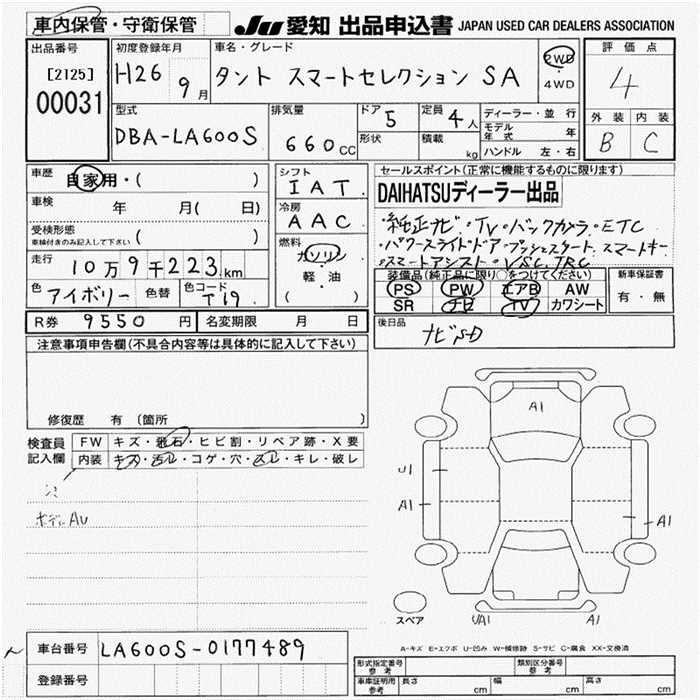 車内保管・守衛保管
JU 愛知 出品申込書 JAPAN USED CAR DEALERS ASSOCIATION
出品番号
[2125]
00031
初度登録年月
H26 9月
車名・グレード
タント スマートセレクション SA
2WD
・
4WD
評価点
4
外装 内装
B C
型式
DBA-LA600S
排気量
660cc
ドア 5
形状
定員 4人
積載 kg
ディーラー・並行
モデル年式 年
ハンドル 左・右
車歴
自家用・( )
車検
年 月( 日)
受検形態
車検付きのみ記入して下さい ( )
走行
10万9千223km
色 アイボリー 色替 色コード T19
シフト
IAT
冷房
AAC
燃料
ガソリン
・
軽・油
( )
セールスポイント(正常に機能するものに限ります)
DAIHATSUディーラー出品
純正ナビ・TV・バックカメラ・ETC
・パワースライドドア プッシュスタート、スマートキー
・スマートアシスト・VSC、TRC
装備品(純正品に限り○をつけてください)
PS PW エアB AW
SR ナビ TV カワシート
新車保証書
有・無
R券 9550円 名変期限 月 日
後日品
ナビSD
注意事項申告欄(不具合内容等は具体的に記入して下さい)
修復歴 有 〔箇所 〕
検査員記入欄
FW キズ・飛石・ヒビ割・リペア跡・X要
内装 キズ・汚レ・コゲ・穴・スレ・キレ・破レ
ボディAU
A1
U1
A1
A1
UA1 A1
スペア
A-キズ E-エクボ U-凹み W-補修跡 S-サビ C-腐食 XX-交換済
車台番号 LA600S-0177489
登録番号
形式指定番号 参考
類別区分番号 参考
車庫証明用 参考 長さ cm 幅 cm 高さ cm